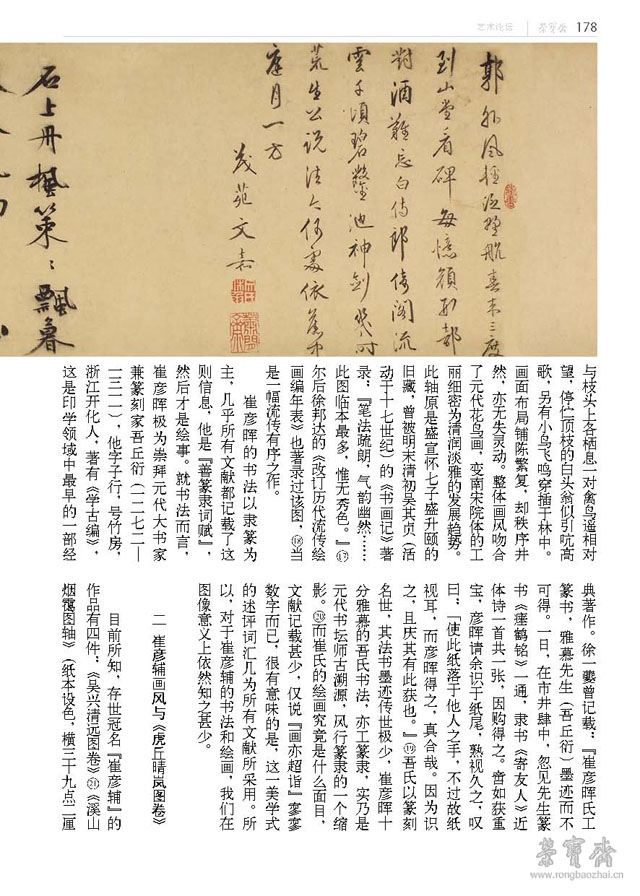 艺术论坛 荣宝斋 178
郭外風輕泛野航春来三度
到山堂看碑每憶顏
對酒難忘白侍郎傍閣流
雲千頃碧 池神剑幾时
荒生公說法今何處依舊中
庭月一方
茂苑文嘉
石上丹楓策〻飄暮
与枝头上各栖息一对禽鸟遥相对
望，停伫顶枝的白头翁似引吭高
歌，另有小鸟飞鸣穿插于林中。
画面布局铺陈繁复，却秩序井
然，亦无失灵动。整体画风吻合
了元代花鸟画，变南宋院体的工
丽细密为清润淡雅的发展趋势。
此轴原是盛宣怀七子盛升颐的
旧藏，曾被明末清初吴其贞（活
动于十七世纪）的《书画记》著
录：『笔法疏朗，气韵幽然……
此图临本最多，惟无秀色。』⑰
尔后徐邦达的《改订历代流传绘
画编年表》也著录过该图，⑱当
是一幅流传有序之作。
崔彦晖的书法以隶篆为
主，几乎所有文献都记载了这
则信息，他是『善篆隶词赋』，
然后才是绘事。就书法而言，
崔彦晖极为崇拜元代大书家
兼篆刻家吾丘衍（一二七二—
一三一一），他字子行，号竹房，
浙江开化人，著有《学古编》，
这是印学领域中最早的一部经
典著作。徐一夔曾记载：『崔彦晖氏工
篆书，雅慕先生（吾丘衍）墨迹而不
可得。一日，在市井肆中，忽见先生篆
书《瘗鹤铭》一通，隶书《寄友人》近
体诗一首共一张，因购得之。啻如获重
宝，彦晖请余识于纸尾，熟视久之，叹
曰：「使此纸落于他人之手，不过故纸
视耳，而彦晖得之，真合哉。因为识
之，且庆其有此获也。』⑲吾氏以篆刻
名世，其法书墨迹传世极少，崔彦晖十
分雅慕的吾氏书法，亦工篆隶，实乃是
元代书坛师古溯源，风行篆隶的一个缩
影。⑳而崔氏的绘画究竟是什么面目，
文献记载甚少，仅说『画亦超诣』寥寥
数字而已，很有意味的是，这一美学式
的述评词汇几为所有文献所采用。所
以，对于崔彦辅的书法和绘画，我们在
图像意义上依然知之甚少。
二 崔彦辅画风与《虎丘晴岚图卷》
目前所知，存世冠名『崔彦辅』的
作品有四件：《吴兴清远图卷》㉑《溪山
烟霭图轴》（纸本设色，横三十九点二厘
荣宝斋
www.rongbaozhai.cn